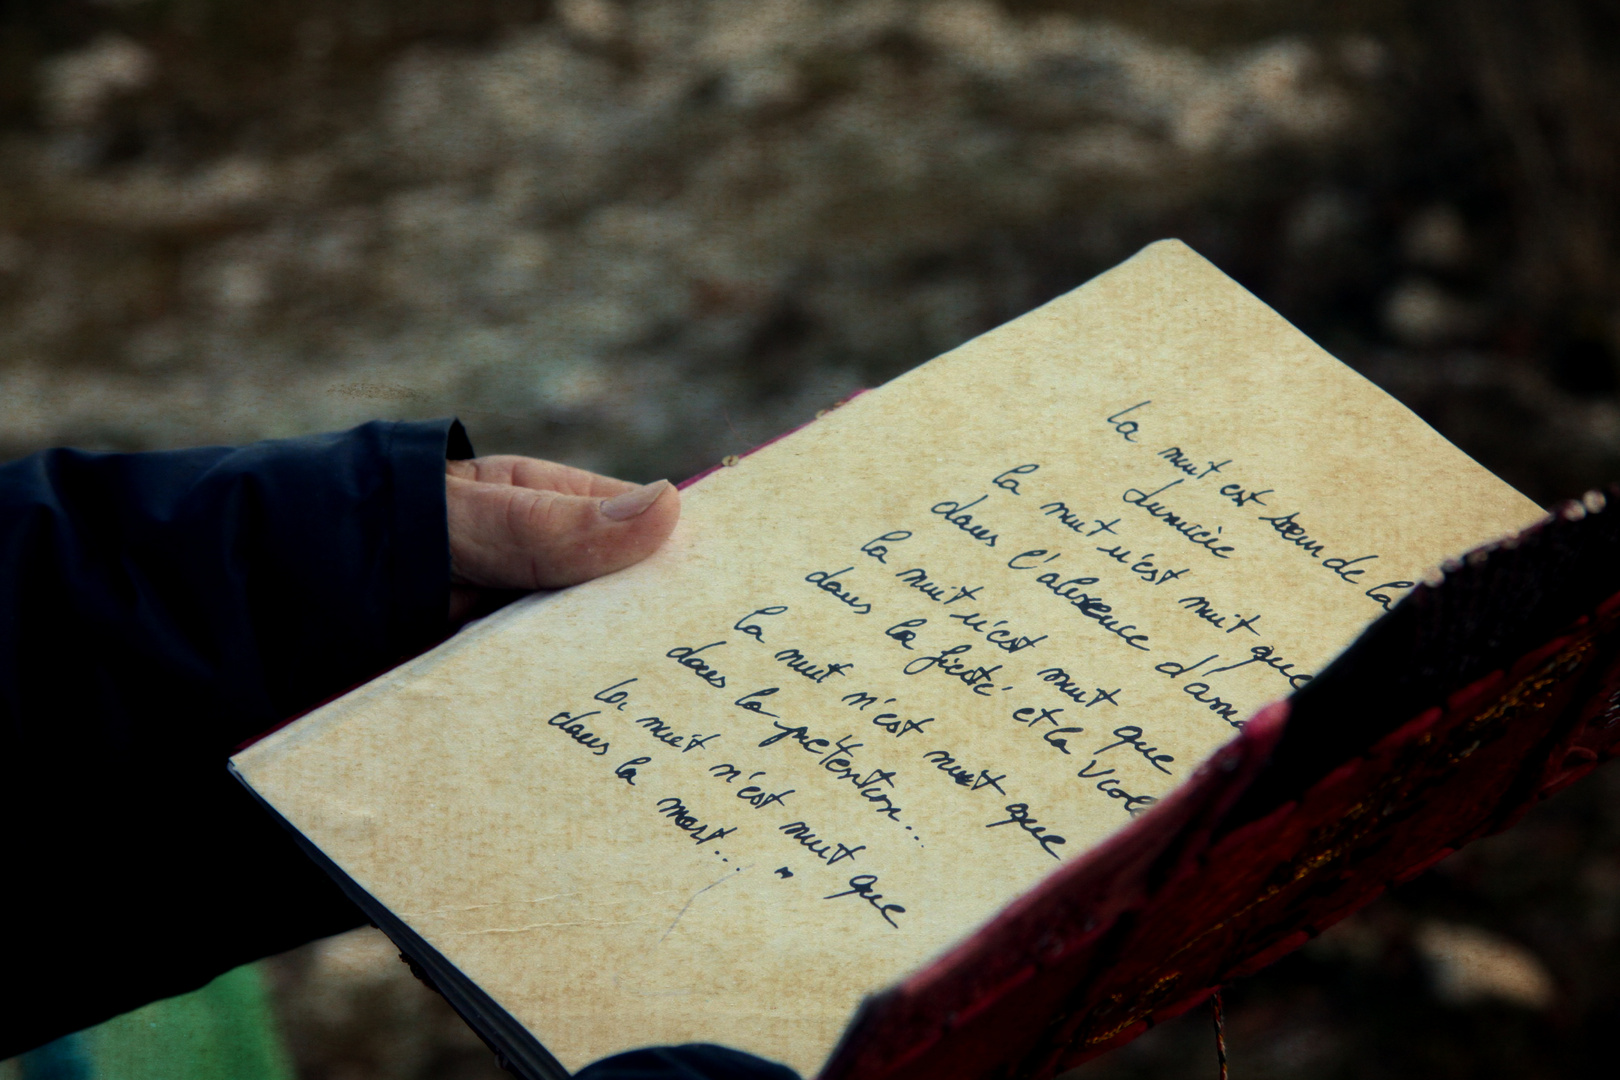 la nuit est sœur de la
lumière
la nuit n'est nuit que
dans l'absence d'amo
la nuit n'est nuit que
dans la fierté et la viole
la nuit n'est nuit que
dans la prétention...
la nuit n'est nuit que
dans la mort... "